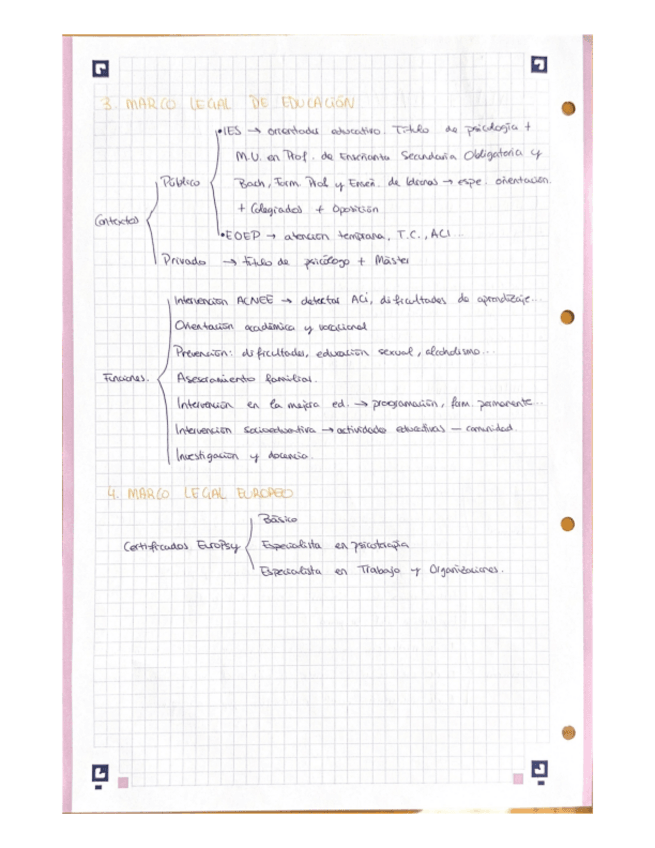 3. MARCO LEGAL DE EDUCACIÓN
•IES → orientador educativo. Título de psicología +
M.U. en Prof. de Enseñanza Secundaria Obligatoria y
Público
Bach, Form. Prof y Enseñ. de Idiomas → espe. orientación.
+ Colegiados + Oposición
Contextos
•EOEP → atención temprana, T.C., ACI...
Privado → título de psicólogo + Máster
Intervención ACNEE → detectar ACI, dificultades de aprendizaje...
Orientación académica y vocacional
Prevención: dificultades, educación sexual, alcoholismo...
Funciones.
Asesoramiento familiar.
Intervención en la mejora ed. → programación, form. permanente...
Intervención socioeducativa → actividades educativas — comunidad.
Investigación y docencia.
4. MARCO LEGAL EUROPEO
Básico
Certificados EuroPsy
Especialista en psicoterapia
Especialista en Trabajo y Organizaciones.